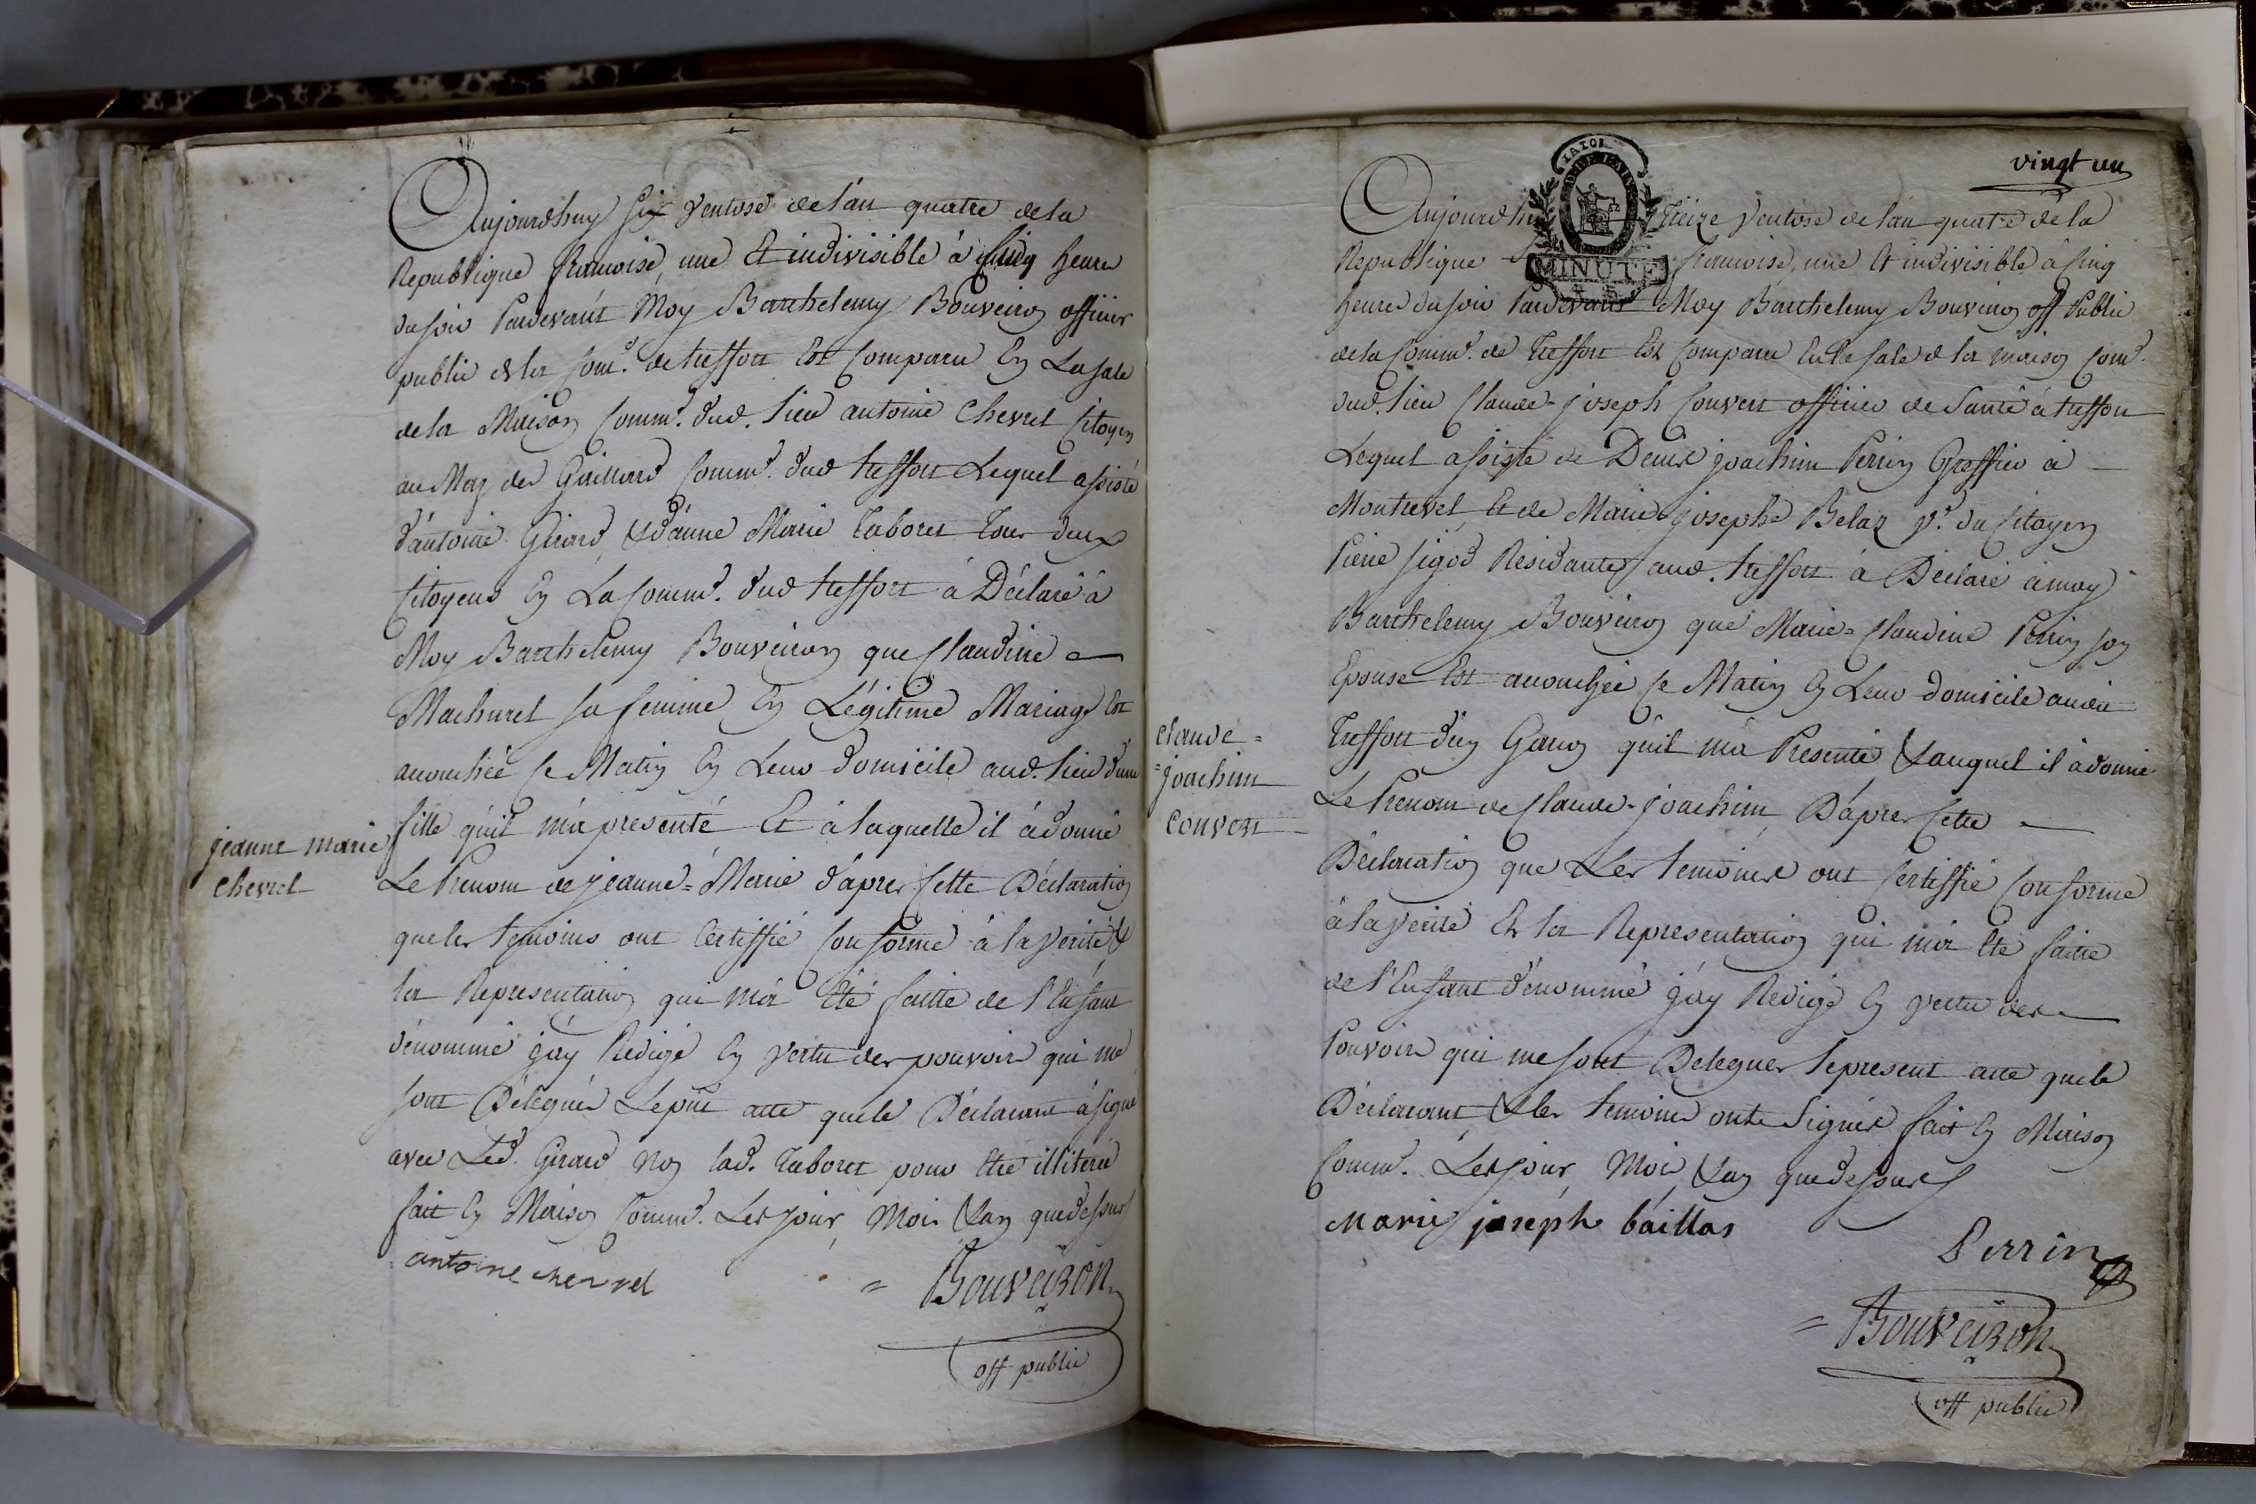 Aujourdhuy six ventose de l'an quatre de la
Republique francoise, une & indivisible à cinq heures
du soir Pardevant Moy Barthelemy Bouveiron officier
public de la Com.e de treffort Est Comparu En La sale
de la Maison Comm.e dud. lieu antoine Chevrel Citoyen
au Maz des Guillard Comm.e dud treffort Lequel assisté
d'antoine Girard & d'anne Marie Taboret tous deux
Citoyens En La Comm.e dud treffort à Déclaré à
Moy Barthelemy Bouveiron que Claudine
Machurel sa femme En Légitime Mariage Est
accouchée ce Matin En Leur domicile aud. lieu d'une
fille qu'il m'a presenté Et à laquelle il à donné
Le Prenom de jeanne=Marie d'apres cette Déclaration
que les temoins ont Certiffié Conforme à la verité &
la Representation qui m'a Eté faitte de l'Enfant
dénommé j'ay Redigé En vertu des pouvoirs qui me
sont Délegués Le pñt acte que le Déclarant à signé
avec Led. Girard Non lad. Taboret pour être illiteré
fait En Maison Comm.e Les jour, Mois & an que dessus
jeanne marie
Chevrel
antoine chevrel
= Bouveiron
off public
vingt un
MINUTE
Aujourdhuy Treize ventose de l'an quatre de la
Republique francoise, une & indivisible à cinq
heures du soir Pardevant Moy Barthelemy Bouveiron off Public
de la Comm.e de Treffort Est Comparu En la sale de la maison Com.e
dud. lieu Claude-joseph Convert officier de Santé à treffort
Lequel assisté de Denis joachim Perrin Greffier à
Montrevel Et de Marie josephe Belaz v.e du Citoyen
Pierre sigod Residante aud. treffort à Déclaré à moy
Barthelemy Bouveiron que Marie=Claudine Perrin son
Epouse Est accouchée ce Matin En Leur domicile audit
Treffort d'un Garcon qu'il m'a Presenté & auquel il à donné
Le Prenom de Claude-joachim, D'apres cette
Déclaration que Les temoins ont Certiffié Conforme
à la verité Et la Representation qui m'a Eté faitte
de l'Enfant dénommé j'ay Redigé En vertu des
Pouvoirs qui me sont Delegues le present acte que le
Déclarant, & les temoins ont Signés fait En Maison
Comm.e Les jour, Mois, & an que dessus
claude=
=joachim
Convert
Marie joseph baillas
Perrin
= Bouveiron
off public